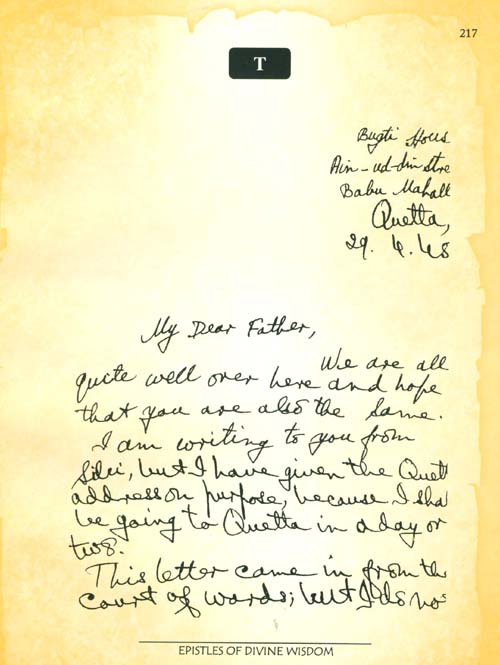 217
T
Bugti Hous
Ain-ud-din Stre
Babu Mahall
Quetta,
29. 4. 48
My Dear Father,
We are all
quite well over here and hope
that you are also the same.
I am writing to you from
Sibi, but I have given the Quett
address on purpose, because I sha
be going to Quetta in a day or
two.
This letter came in from the
Court of words; but I do no
EPISTLES OF DIVINE WISDOM